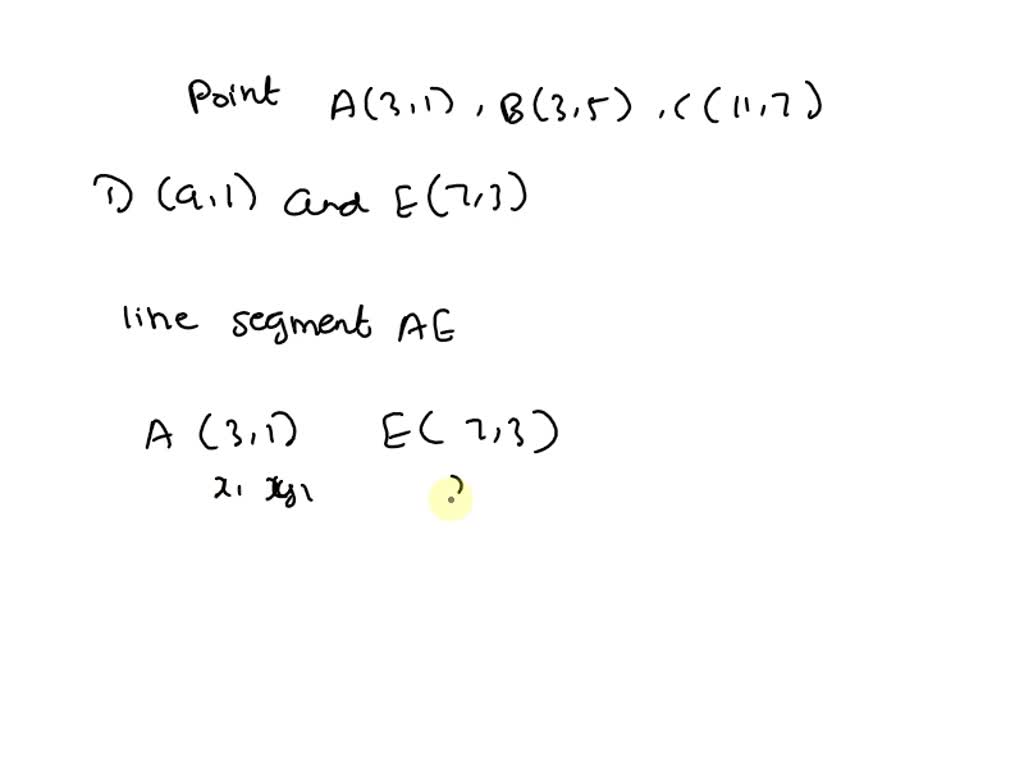 Point A(3,1), B(3,5), C(11,7)
D(a,1) and E(7,3)
line segment AE
A (3,1) E(7,3)
x1 y1